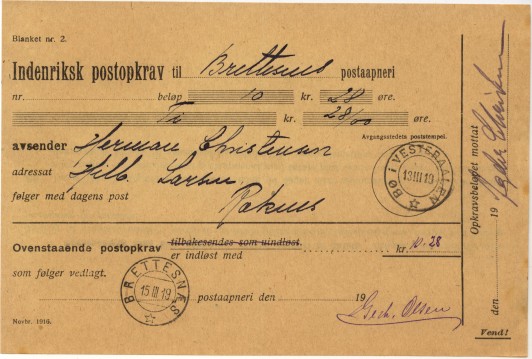 Blanket nr. 2.
Indenriksk postopkrav til Brettesnes postaapneri
nr. beløp 10 kr. 28 øre.
Ti kr. 28/00 øre.
Avgangsstedets poststempel.
avsender Herman Christensen
adressat Hilb. Larsen
følger med dagens post
BØ I VESTERAALEN
13 III 19
Ovenstaaende postopkrav tilbakesendes som uindløst.
er indløst med kr. 10.28
som følger vedlagt.
BRETTESNES
15 III 19
postaapneri den 19
Gech. Olsen
Novbr. 1916.
Opkravsbeløpet mottat
den 19
Vend!